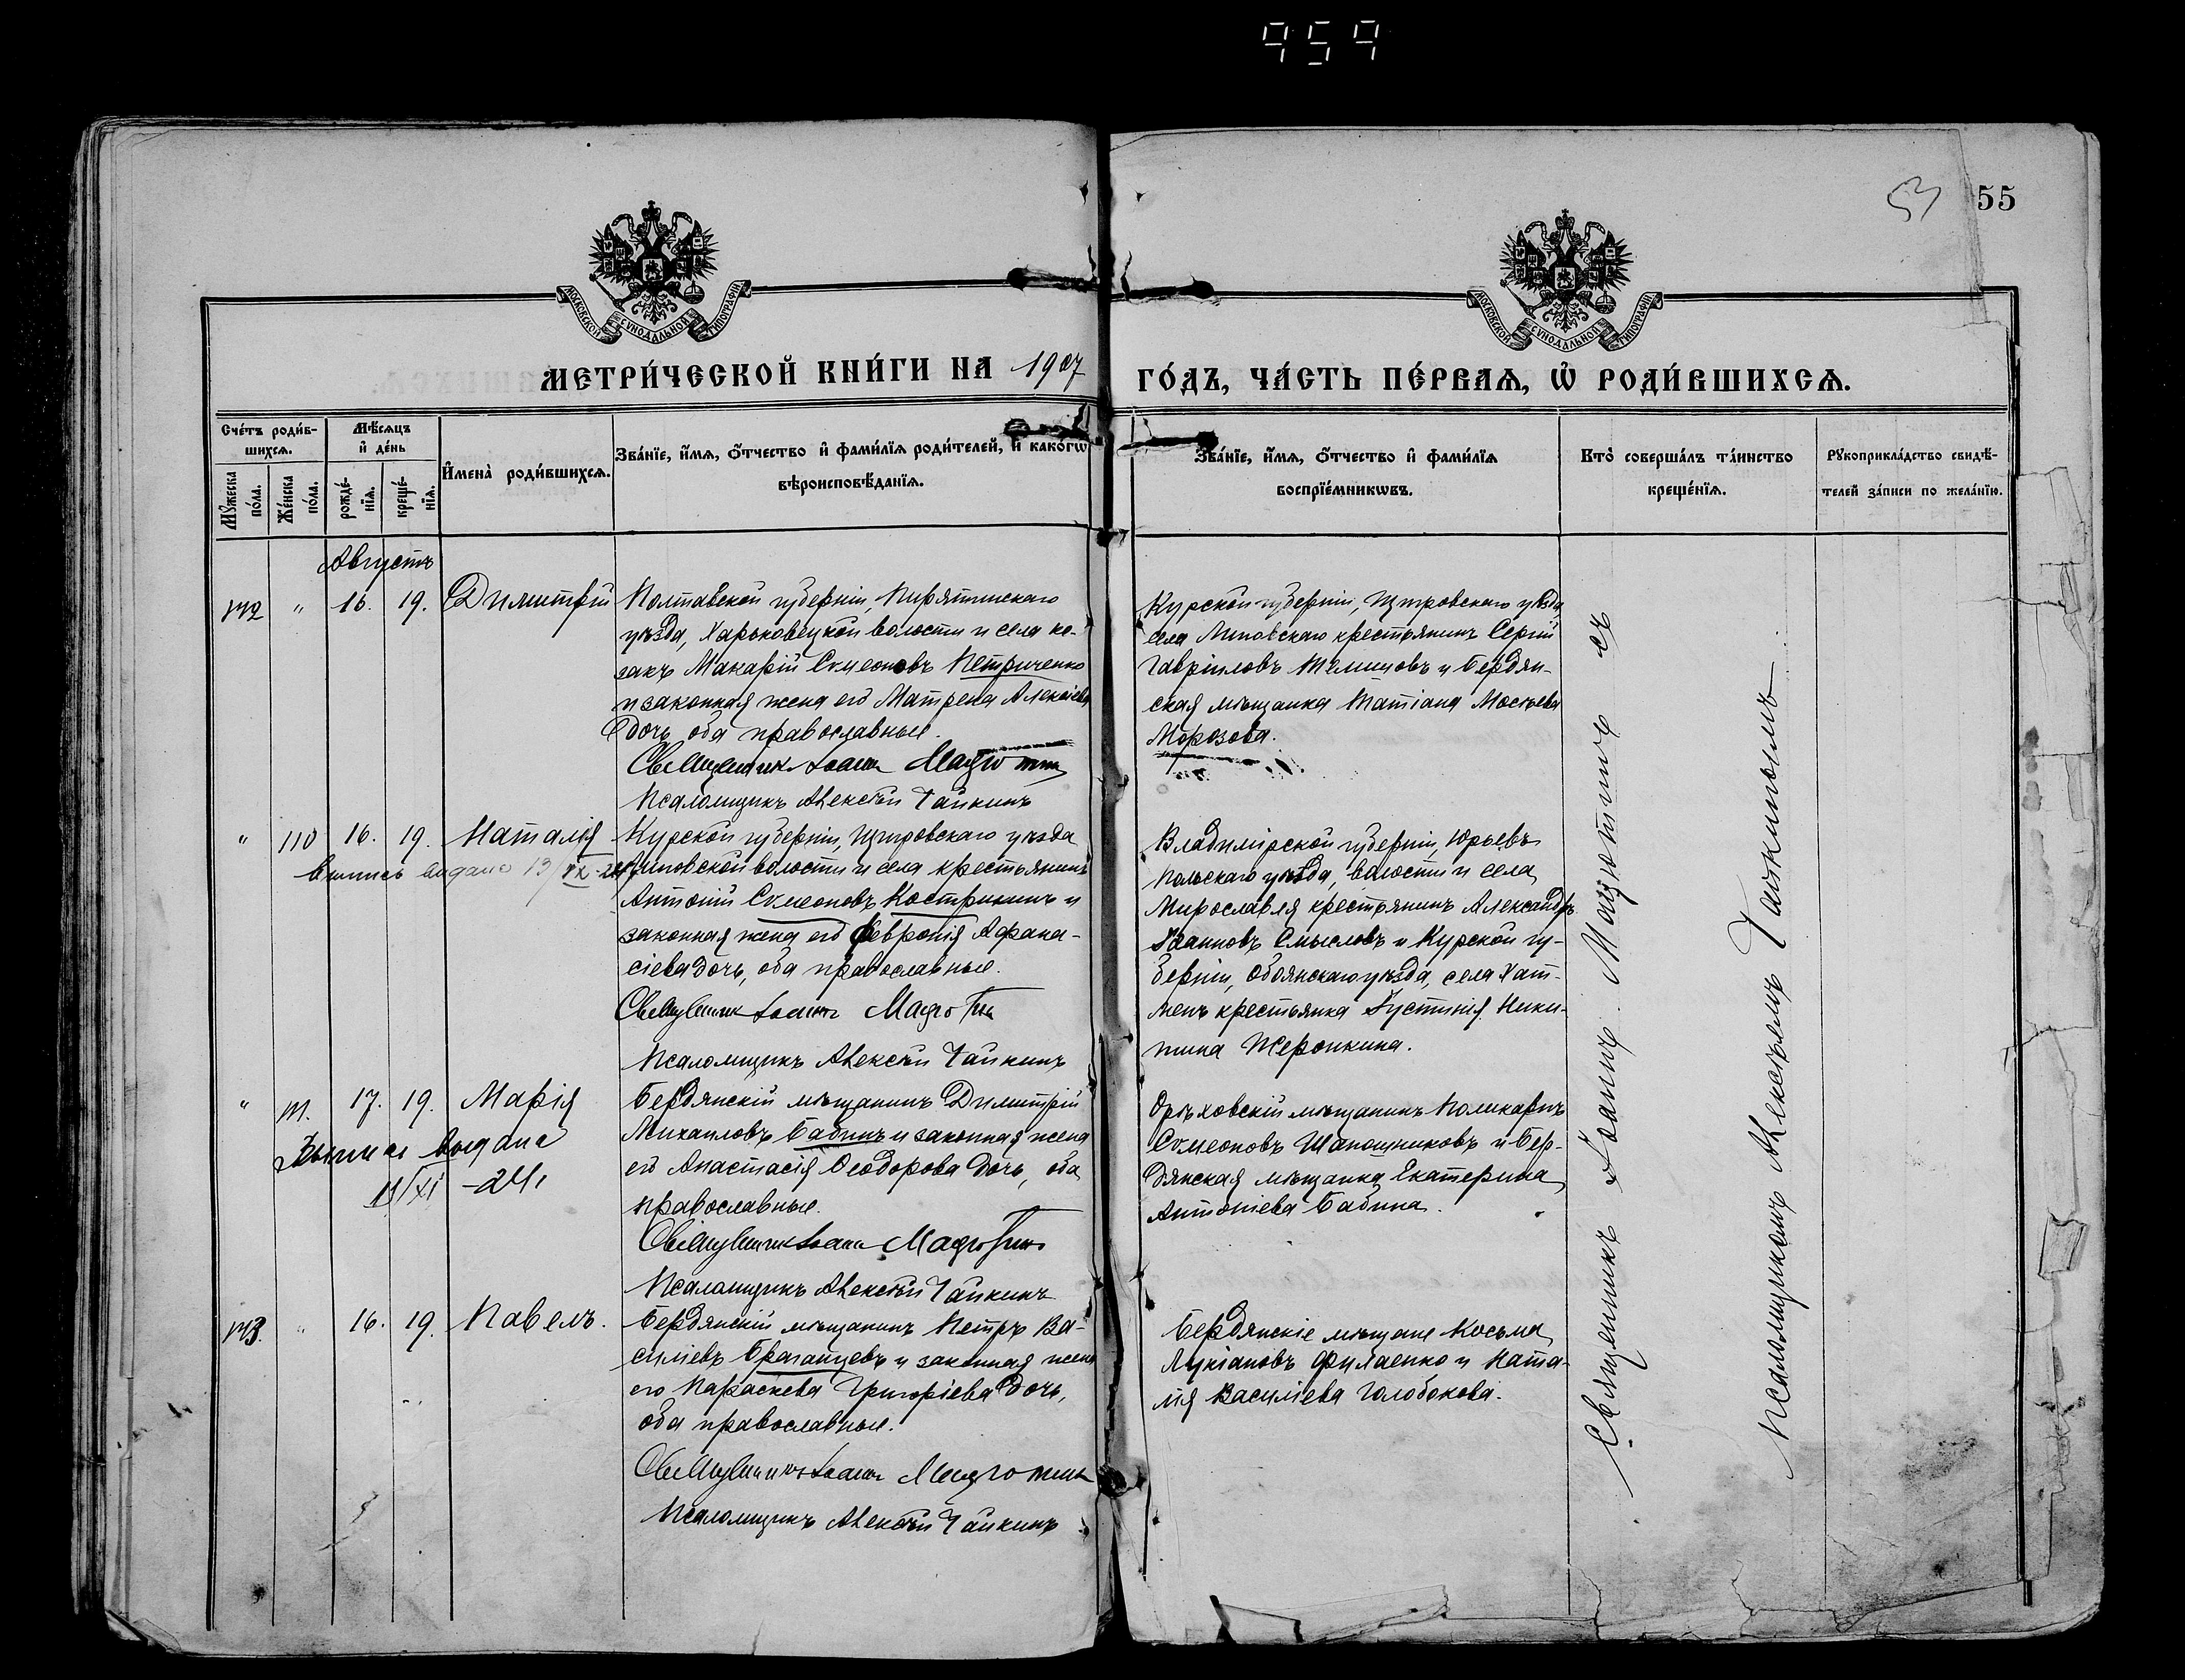 959
53 55
МОСКОВСКОЙ СѴНОДАЛЬНОЙ ТИПОГРАФІИ
МОСКОВСКОЙ СѴНОДАЛЬНОЙ ТИПОГРАФІИ
МЕТРИ́ЧЕСКОЙ КНИ́ГИ НА 1907 ГО́ДЪ, ЧА́СТЬ ПЕ́РВАѦ, Ѡ҆ РОДИ́ВШИХСѦ.
Сче́тъ роди́в-
шихсѧ.
Мѣ́сѧцъ
и҆ де́нь
Мꙋ́жеска по́ла.
Же́нска по́ла.
рожде́-
нїѧ.
креще́-
нїѧ.
И҆мена̀ роди́вшихсѧ.
Зва́нїе, и҆́мѧ, ѻ҆́тчество и҆ фами́лїѧ роди́телей, и҆ како́гѡ
вѣроисповѣ́данїѧ.
Зва́нїе, и҆́мѧ, ѻ҆́тчество и҆ фами́лїѧ
воспрїе́мникѡвъ.
Кто̀ соверша́лъ та́инство
креще́нїѧ.
Рꙋкоприкла́дство свидѣ́-
телей за́писи по жела́нїю.
Августъ
" 16. 19. Димитрій
Полтавской губерніи, Пирятинскаго
уѣзда, Харьковецкой волости и села ко-
закъ Макарій Сѵмеоновъ Петриченко
и законная жена его Матрена Алексіева
дочь, оба православные.
Священникъ Іоаннъ
Псаломщикъ Алексѣй Чайкинъ
Курской губерніи, Щигровскаго уѣзда
села Липовскаго крестьянинъ Сергій
Гавріиловъ и Бердян-
ская мѣщанка Татіана
Морозова.
" 110 16. 19. Наталія
Выпись выдана 13/IX-24
Курской губерніи, Щигровскаго уѣзда
Липовской волости и села крестьянинъ
Антоній Сѵмеоновъ Кострикинъ и
законная жена его Февронія Афана-
сіева дочь, оба православные.
Священникъ Іоаннъ
Псаломщикъ Алексѣй Чайкинъ
Владимірской губерніи, Юрьевъ
Польскаго уѣзда, волости и села
Мирославля крестьянинъ Александръ
Іоанновъ Смысловъ и Курской гу-
берніи, Обоянскаго уѣзда, села Хат-
менъ крестьянка Іустинія Ники-
тина Жеронкина.
" 17. 19. Марія
Выпись выдана
11/XI -24
Бердянскій мѣщанинъ Димитрій
Михаиловъ Бабинъ и законная жена
его Анастасія Ѳеодорова дочь, оба
православные.
Священникъ Іоаннъ
Псаломщикъ Алексѣй Чайкинъ
Орѣховскій мѣщанинъ Поликарпъ
Сѵмеоновъ Шапошниковъ и Бер-
дянская мѣщанка Екатерина
Антоніева Бабина.
" 16. 19. Павелъ.
Бердянскій мѣщанинъ Петръ Ва-
силіевъ Браганцевъ и законная жена
его Параскева Григоріева дочь,
оба православные.
Священникъ Іоаннъ
Псаломщикъ Алексѣй Чайкинъ
Бердянскіе мѣщане Косьма
Лукіановъ Филаенко и Ната-
лія Василіева Голобокова.
Священникъ Іоаннъ съ
Псаломщикомъ Алексѣемъ Чайкинымъ